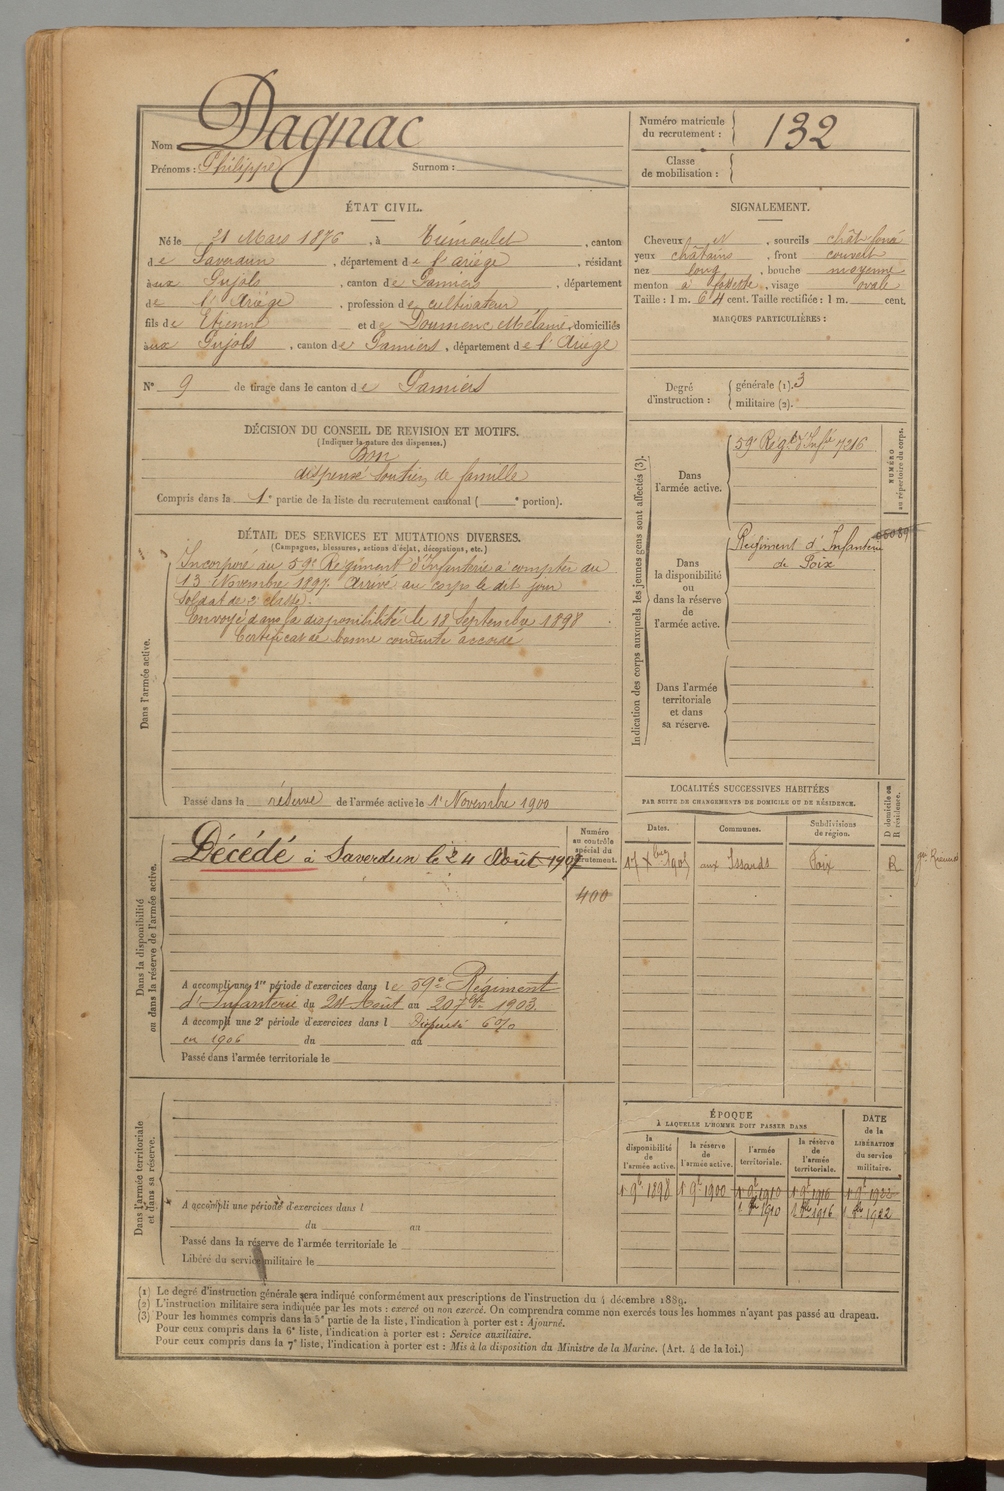 Nom Dagnac
Prénoms : Philippe Surnom :
Numéro matricule
du recrutement : 132
Classe
de mobilisation :
ÉTAT CIVIL.
Né le 21 Mars 1876, à Trémoulet, canton
de Saverdun, département de l'ariége, résidant
à aux Pujols, canton de Pamiers, département
de l'Ariége, profession de cultivateur
fils de Etienne et de Doumenc Mélanie, domiciliés
à aux Pujols, canton de Pamiers, département de l'Ariége
N° 9 de tirage dans le canton de Pamiers
SIGNALEMENT.
Cheveux N, sourcils chât. foncé
yeux châtains, front couvert
nez long, bouche moyenne
menton à fossette, visage ovale
Taille : 1 m. 64 cent. Taille rectifiée : 1 m. cent.
MARQUES PARTICULIÈRES :
Degré
d'instruction :
générale (1). 3
militaire (2).
DÉCISION DU CONSEIL DE REVISION ET MOTIFS.
(Indiquer la nature des dispenses.)
Bon
dispensé soutien de famille
Compris dans la 1e partie de la liste du recrutement cantonal ( e portion).
DÉTAIL DES SERVICES ET MUTATIONS DIVERSES.
(Campagnes, blessures, actions d'éclat, décorations, etc.)
Dans l'armée active.
Incorporé au 59e Régiment d'Infanterie à compter du
13 Novembre 1897. Arrivé au corps le dit jour
Soldat de 2e classe.
Envoyé dans la disponibilité le 18 Septembre 1898
Certificat de bonne conduite accordé
Passé dans la réserve de l'armée active le 1er Novembre 1900
Indication des corps auxquels les jeunes gens sont affectés (3).
NUMÉRO
au répertoire du corps.
Dans
l'armée active.
59e Régt d'Infie 7216
Dans
la disponibilité
ou
dans la réserve
de
l'armée active.
Régiment d'Infanterie
de Foix
Dans l'armée
territoriale
et dans
sa réserve.
Dans la disponibilité
ou dans la réserve de l'armée active.
Décédé à Saverdun le 24 Août 1907
Numéro
au contrôle
spécial du
recrutement.
400
A accompli une 1re période d'exercices dans le 59e Régiment
d'Infanterie du 24 Août au 20 7bre 1903.
A accompli une 2e période d'exercices dans l Dispensé 6%
en 1906 du au
Passé dans l'armée territoriale le
LOCALITÉS SUCCESSIVES HABITÉES
PAR SUITE DE CHANGEMENTS DE DOMICILE OU DE RÉSIDENCE.
D domicile ou
R résidence.
Dates. Communes. Subdivisions
de région.
17 Xbre 1905 aux Issards Foix R
Dans l'armée territoriale
et dans sa réserve.
A accompli une période d'exercices dans l
du au
Passé dans la réserve de l'armée territoriale le
Libéré du service militaire le
ÉPOQUE
À LAQUELLE L'HOMME DOIT PASSER DANS
la
disponibilité
de
l'armée active.
la réserve
de
l'armée active.
l'armée
territoriale.
la réserve
de
l'armée
territoriale.
DATE
de la
LIBÉRATION
du service
militaire.
1er 9bre 1898 1er 9bre 1900 1er 9bre 1910 1er 9bre 1916 1er 9bre 1922
1910 1916 1922
(1) Le degré d'instruction générale sera indiqué conformément aux prescriptions de l'instruction du 4 décembre 1889.
(2) L'instruction militaire sera indiquée par les mots : exercé ou non exercé. On comprendra comme non exercés tous les hommes n'ayant pas passé au drapeau.
(3) Pour les hommes compris dans la 5e partie de la liste, l'indication à porter est : Ajourné.
Pour ceux compris dans la 6e liste, l'indication à porter est : Service auxiliaire.
Pour ceux compris dans la 7e liste, l'indication à porter est : Mis à la disposition du Ministre de la Marine. (Art. 4 de la loi.)